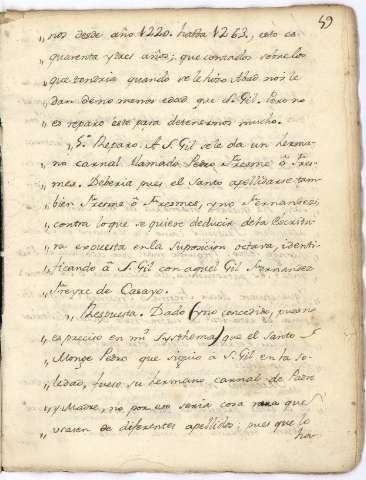 59
„ nos desde año 1220. hasta 1263, esto es
„ quarenta y tres años; que contados sobre los
„ que tendria quando se le hizo Abad nos le
„ dan de no menos edad que S. Gil. Pero no
„ es reparo este para detenernos mucho.
„ 5º Reparo. A S. Gil se le da un herma-
„ no carnal llamado Pedro Fresme ô Fres-
„ mes. Deberia pues el Santo apellidarse tam-
„ bien Fresme ô Fresmes, y no Fernandez;
„ contra lo que se quiere deducir de la Escritu-
„ ra expuesta en la suposicion octava, identi-
„ ficando â S. Gil con aquel Gil Fernandez
„ Freyre de Casayo.
„ Respuesta. Dado (y no concedido, pues no
„ es preciso en mi Systhema) que el Santo
„ Monge Pedro que siguio â S. Gil en la so-
„ ledad, fuese su hermano carnal de Padre
„ y Madre, no por eso seria cosa rara que
„ usasen de diferentes apellidos; pues que lo